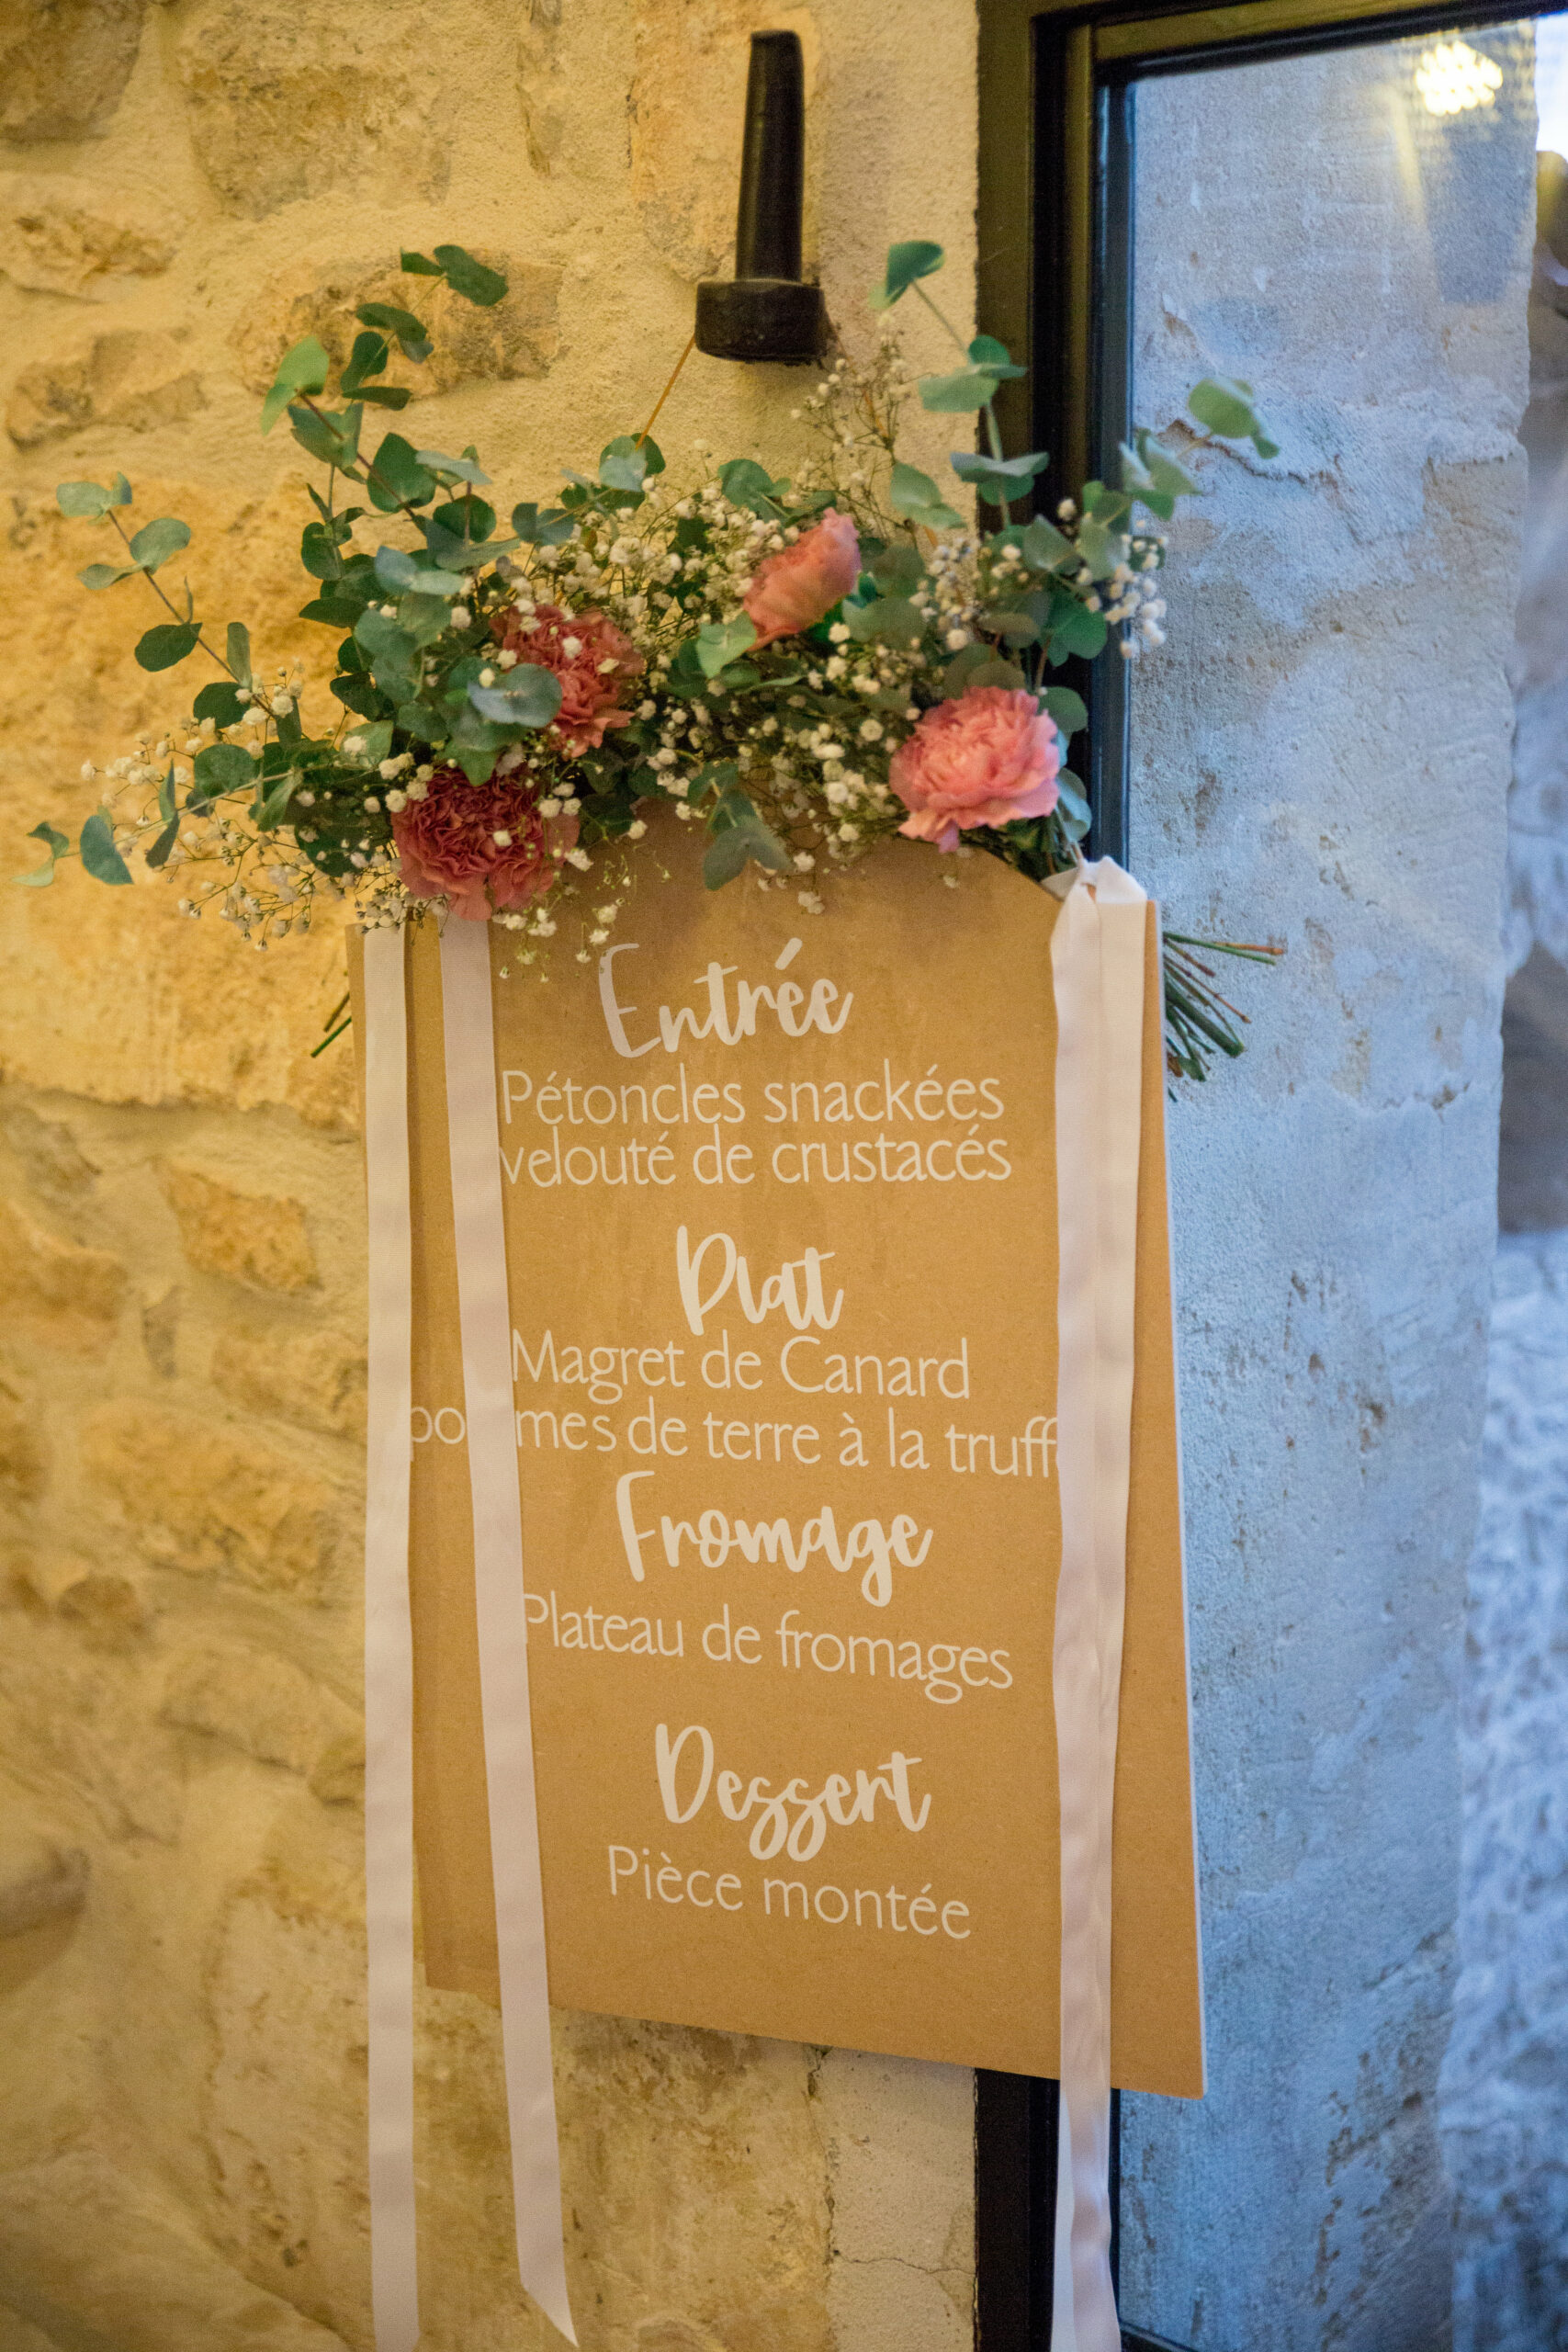 Entrée
Pétoncles snackées
velouté de crustacés
Plat
Magret de Canard
de terre à la
Fromage
Plateau de fromages
Dessert
Pièce montée